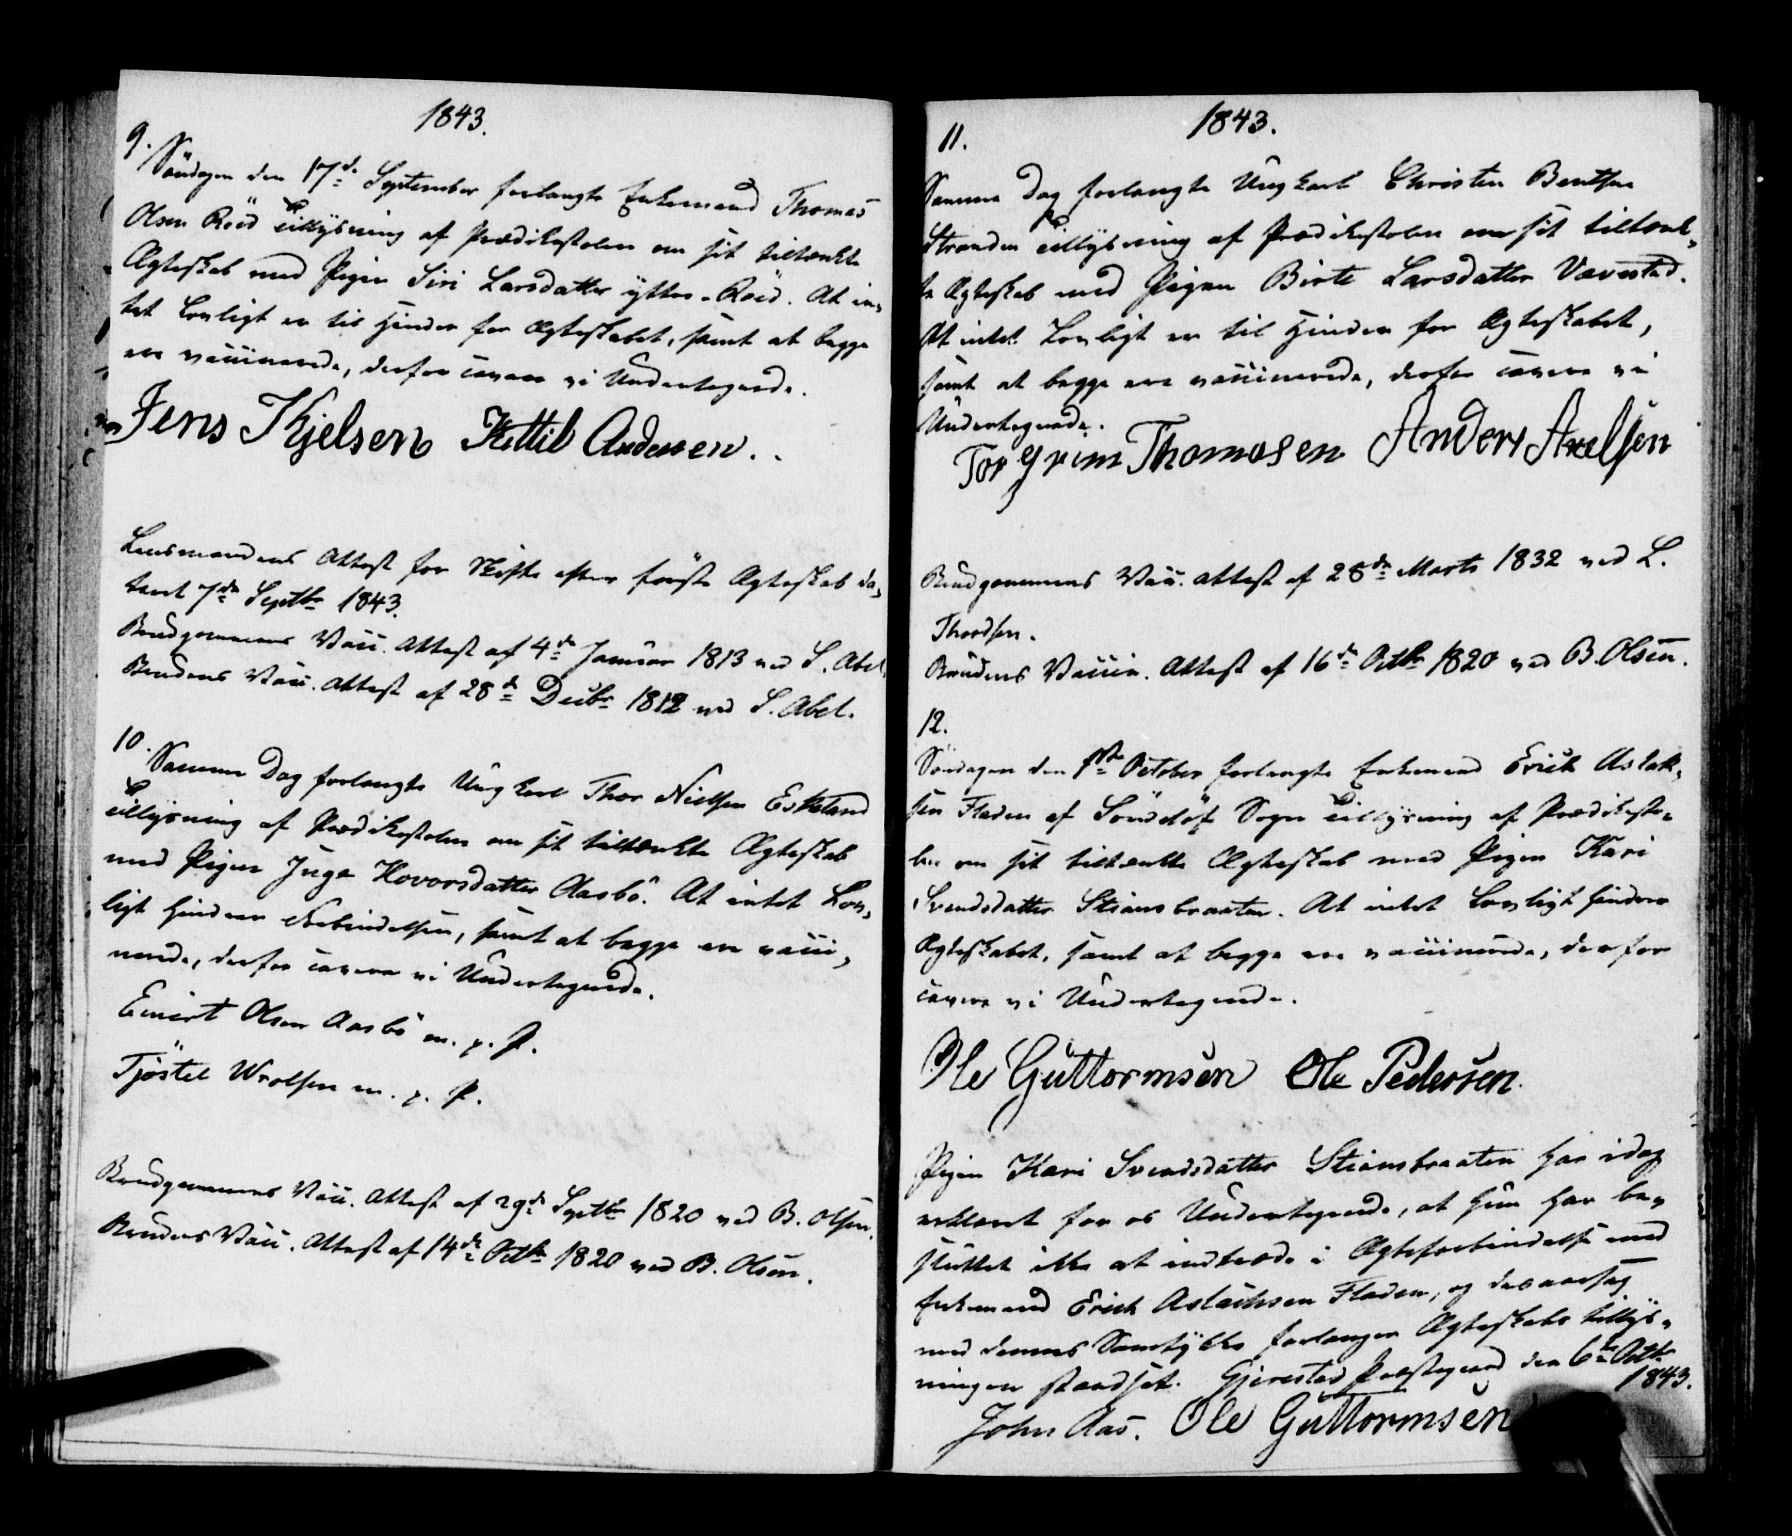 1843.
9.
Søndagen den 17de September forlangte Enkemand Thomas
Olsen Röed Tillysning af Prædikestolen om sit tiltænkte
Ægteskab med Pigen Siri Larsdatter yttre-Röed. At in-
tet Lovligt er til Hinder for Ægteskabet, samt at begge
ere vaccinerede, derfor cavere vi Undertegnede.
Jens Kjelsen Kittil Andersen.
Lensmandens Attest for Skifte efter første Ægteskab da-
teret 7de Septbr 1843.
Brudgommens Vacc. Attest af 4de Januar 1813 ved S. Abel.
Brudens Vacc. Attest af 28de Decbr 1812 ved S. Abel.
10.
Samme Dag forlangte Ungkarl Thor Nielsen Eskeland
Tillysning af Prædikestolen om sit tiltænkte Ægteskab
med Pigen Inge Hovorsdatter Aasbö. At intet Lov-
ligt hindrer Forbindelsen, samt at begge ere vacci-
nerede, derfor cavere vi Undertegnede.
Eivint Olsen Aasbö m. p. P.
Tjöstel Wrolsen m. p. P.
Brudgommens Vacc. Attest af 29de Septbr 1820 ved B. Olsen.
Brudens Vacc. Attest af 14de Octbr 1820 ved B. Olsen.
1843.
11.
Samme Dag forlangte Ungkarl Christen Bentsen
Stranden Tillysning af Prædikestolen om sit tiltænk-
te Ægteskab med Pigen Birte Larsdatter Vævestad.
At intet Lovligt er til Hinder for Ægteskabet,
samt at begge ere vaccinerede, derfor cavere vi
Undertegnede.
Torgrim Thomasen Anders Axelsen
Brudgommens Vacc. Attest af 28de Marts 1832 ved L.
Thordsen.
Brudens Vaccin. Attest af 16de Octbr 1820 ved B. Olsen.
12.
Søndagen den 1ste October forlangte Enkemand Erich Aslak-
sen Fladen af Söndeløf Sogn Tillysning af Prædikesto-
len om sit tiltænkte Ægteskab med Pigen Kari
Svendsdatter Stiansbraaten. At intet Lovligt hindrer
Ægteskabet, samt at begge ere vaccinerede, derfor
cavere vi Undertegnede.
Ole Guttormsen Ole Pedersen
Pigen Kari Svendsdatter Stiansbraaten har idag
erklæret for os Undertegnede, at hun har be-
sluttet ikke at indtræde i Ægteforbindelse med
Enkemand Erich Aslachsen Fladen, og desaarsag
med dennes Samtykke forlanger Ægteskabs tillys-
ningen standset. Gjerestad Præstegaard den 6te Octbr
1843.
John Aas. Ole Guttormsen